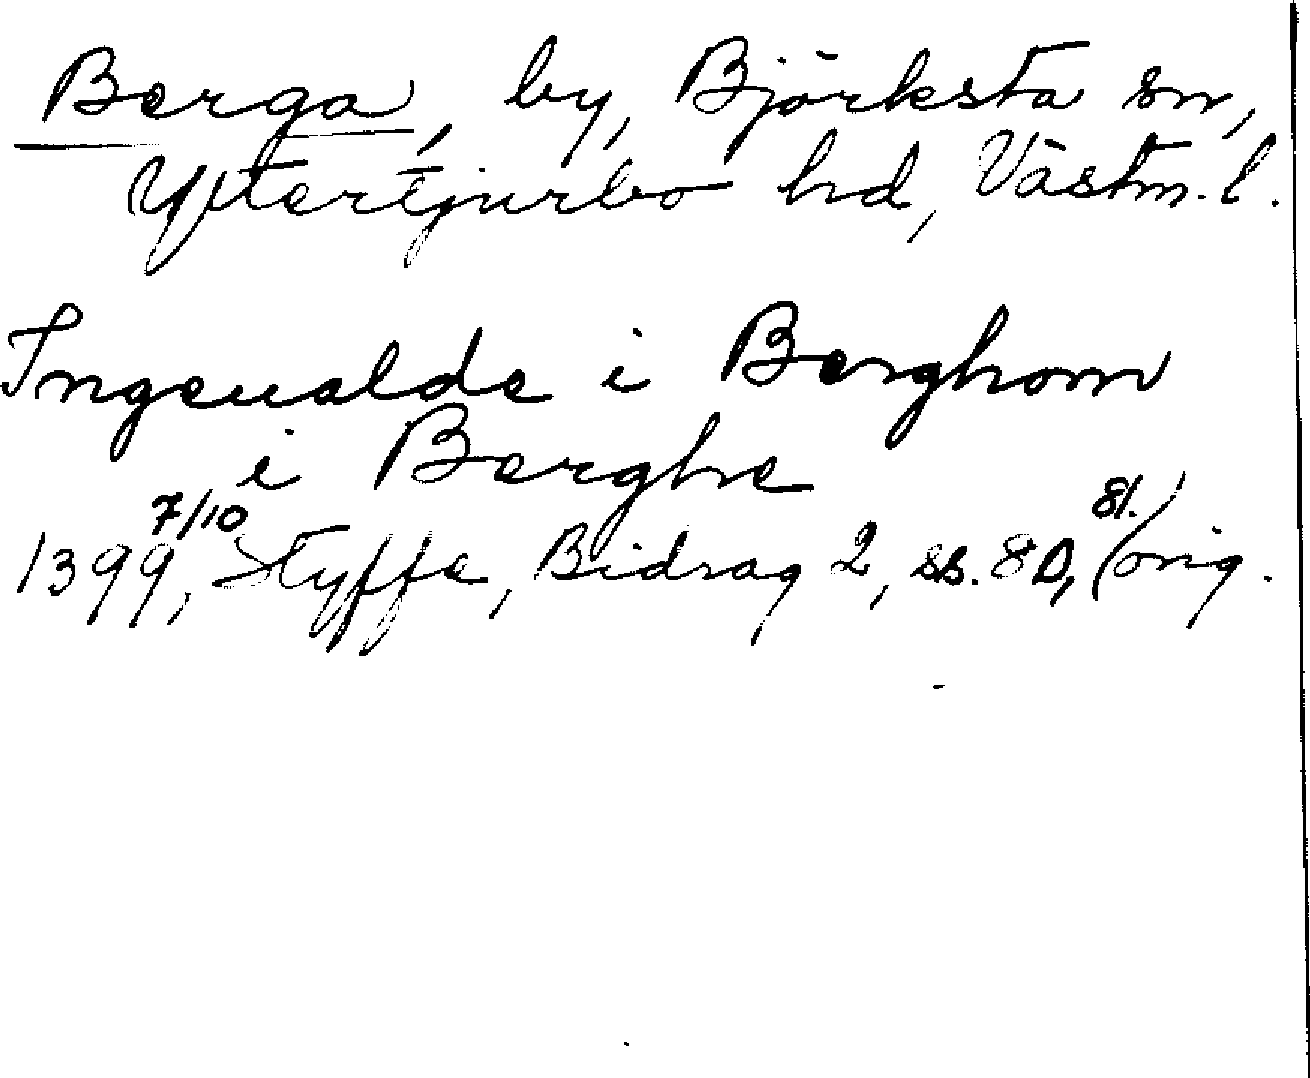 Berga, by, Björksta sn,
Yttertjurbo hd, Västm. l.
Ingeualde i Berghom
i Berghe
1399 7/10, Styffe, Bidrag 2, ss. 80, 81. (orig.